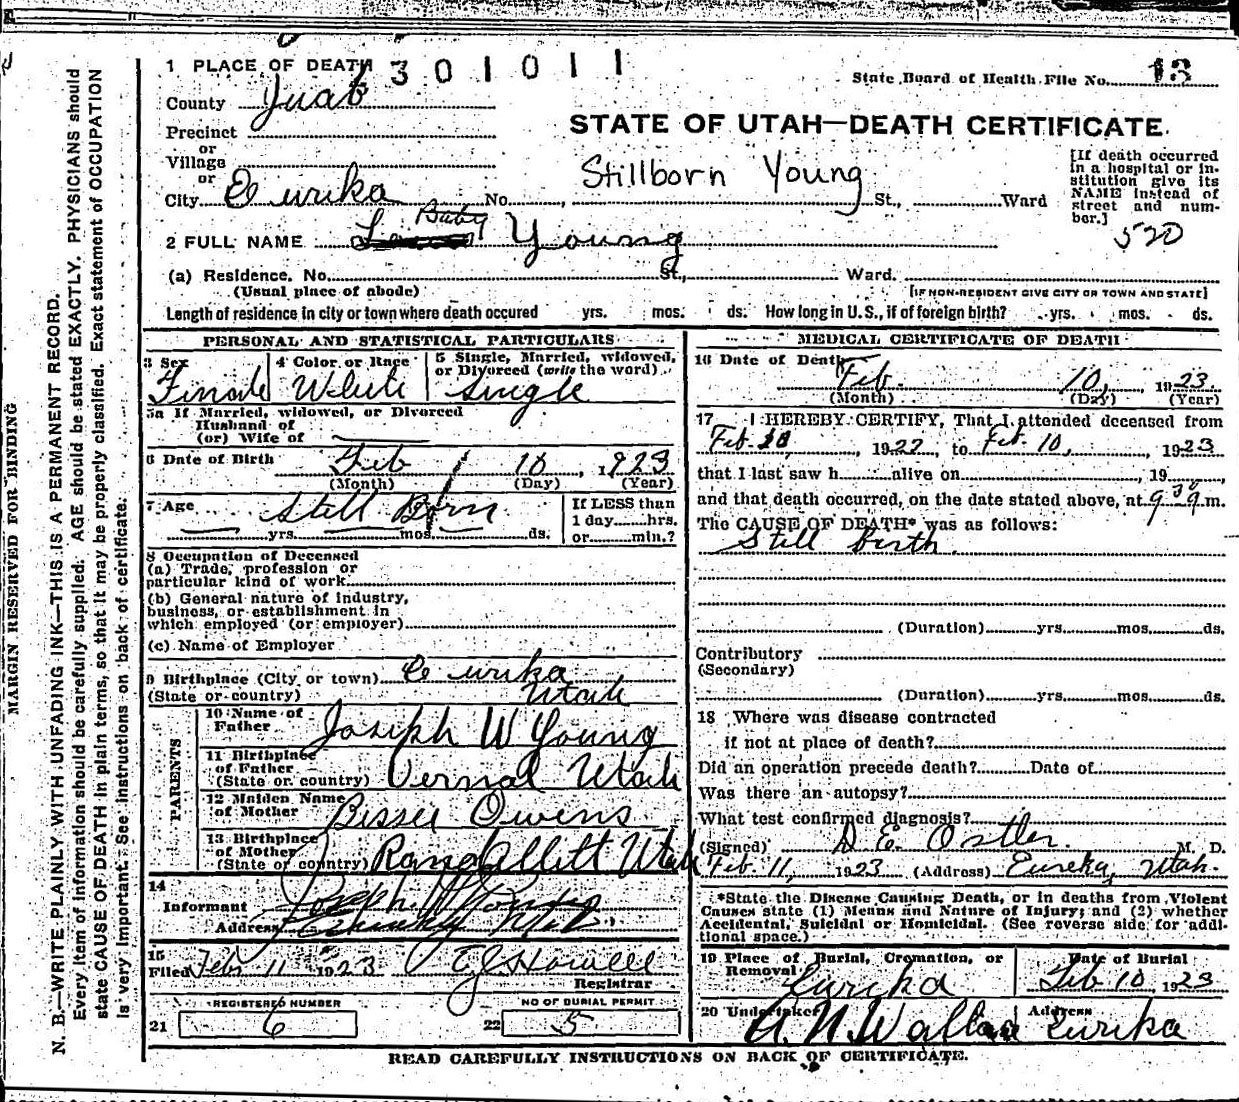 1 PLACE OF DEATH 2301011
State Board of Health File No. 13
County Juab
STATE OF UTAH—DEATH CERTIFICATE.
Precinct
or
Village
or
City Eurika No. , Stillborn Young St., Ward
[If death occurred
in a hospital or in-
stitution give its
NAME instead of
street and num-
ber.]
520
Baby
2 FULL NAME Young
(a) Residence. No. St., Ward.
(Usual place of abode) [IF NON-RESIDENT GIVE CITY OR TOWN AND STATE]
Length of residence in city or town where death occured yrs. mos. ds. How long in U. S., if of foreign birth? yrs. mos. ds.
PERSONAL AND STATISTICAL PARTICULARS
3 Sex
Female
4 Color or Race
White
5 Single, Married, widowed,
or Divorced (write the word)
Single
5a If Married, widowed, or Divorced
Husband of
(or) Wife of
6 Date of Birth Feb 10, 1923
(Month) (Day) (Year)
7 Age Still Born
yrs. mos. ds.
If LESS than
1 day......hrs.
or......min.?
8 Occupation of Deceased
(a) Trade, profession or
particular kind of work
(b) General nature of industry,
business, or establishment in
which employed (or employer)
(c) Name of Employer
9 Birthplace (City or town) Eurika
(State or country) Utah
PARENTS
10 Name of
Father Joseph W Young
11 Birthplace
of Father
(State or country) Vernal Utah
12 Maiden Name
of Mother Bessie Owens
13 Birthplace
of Mother
(State or country) Randellett Utah
14
Informant Joseph W Young
Address
15
Filed Feb 11 1923 E J Howell
Registrar
REGISTERED NUMBER NO OF BURIAL PERMIT
21 6 22 5
MEDICAL CERTIFICATE OF DEATH
16 Date of Death Feb. 10, 1923
(Month) (Day) (Year)
17 I HEREBY CERTIFY, That I attended deceased from
Feb. 1922 to Feb. 10, 1923
that I last saw h alive on , 19 ,
and that death occurred, on the date stated above, at 9 30 a.m.
The CAUSE OF DEATH* was as follows:
Still birth
(Duration) yrs. mos. ds.
Contributory
(Secondary)
(Duration) yrs. mos. ds.
18 Where was disease contracted
if not at place of death?
Did an operation precede death? Date of
Was there an autopsy?
What test confirmed diagnosis?
(Signed) D. E. Ostler. M. D.
Feb 11, 1923 (Address) Eureka, Utah.
*State the Disease Causing Death, or in deaths from Violent
Causes state (1) Means and Nature of Injury; and (2) whether
Accidental, Suicidal or Homicidal. (See reverse side for addi-
tional space.)
19 Place of Burial, Cremation, or
Removal
Eurika
Date of Burial
Feb 10 1923
20 Undertaker
A. N. Wallace
Address
Eurika
READ CAREFULLY INSTRUCTIONS ON BACK OF CERTIFICATE.
MARGIN RESERVED FOR BINDING
N. B.—WRITE PLAINLY WITH UNFADING INK—THIS IS A PERMANENT RECORD.
Every item of information should be carefully supplied. AGE should be stated EXACTLY. PHYSICIANS should
state CAUSE OF DEATH in plain terms, so that it may be properly classified. Exact statement of OCCUPATION
is very important. See instructions on back of certificate.